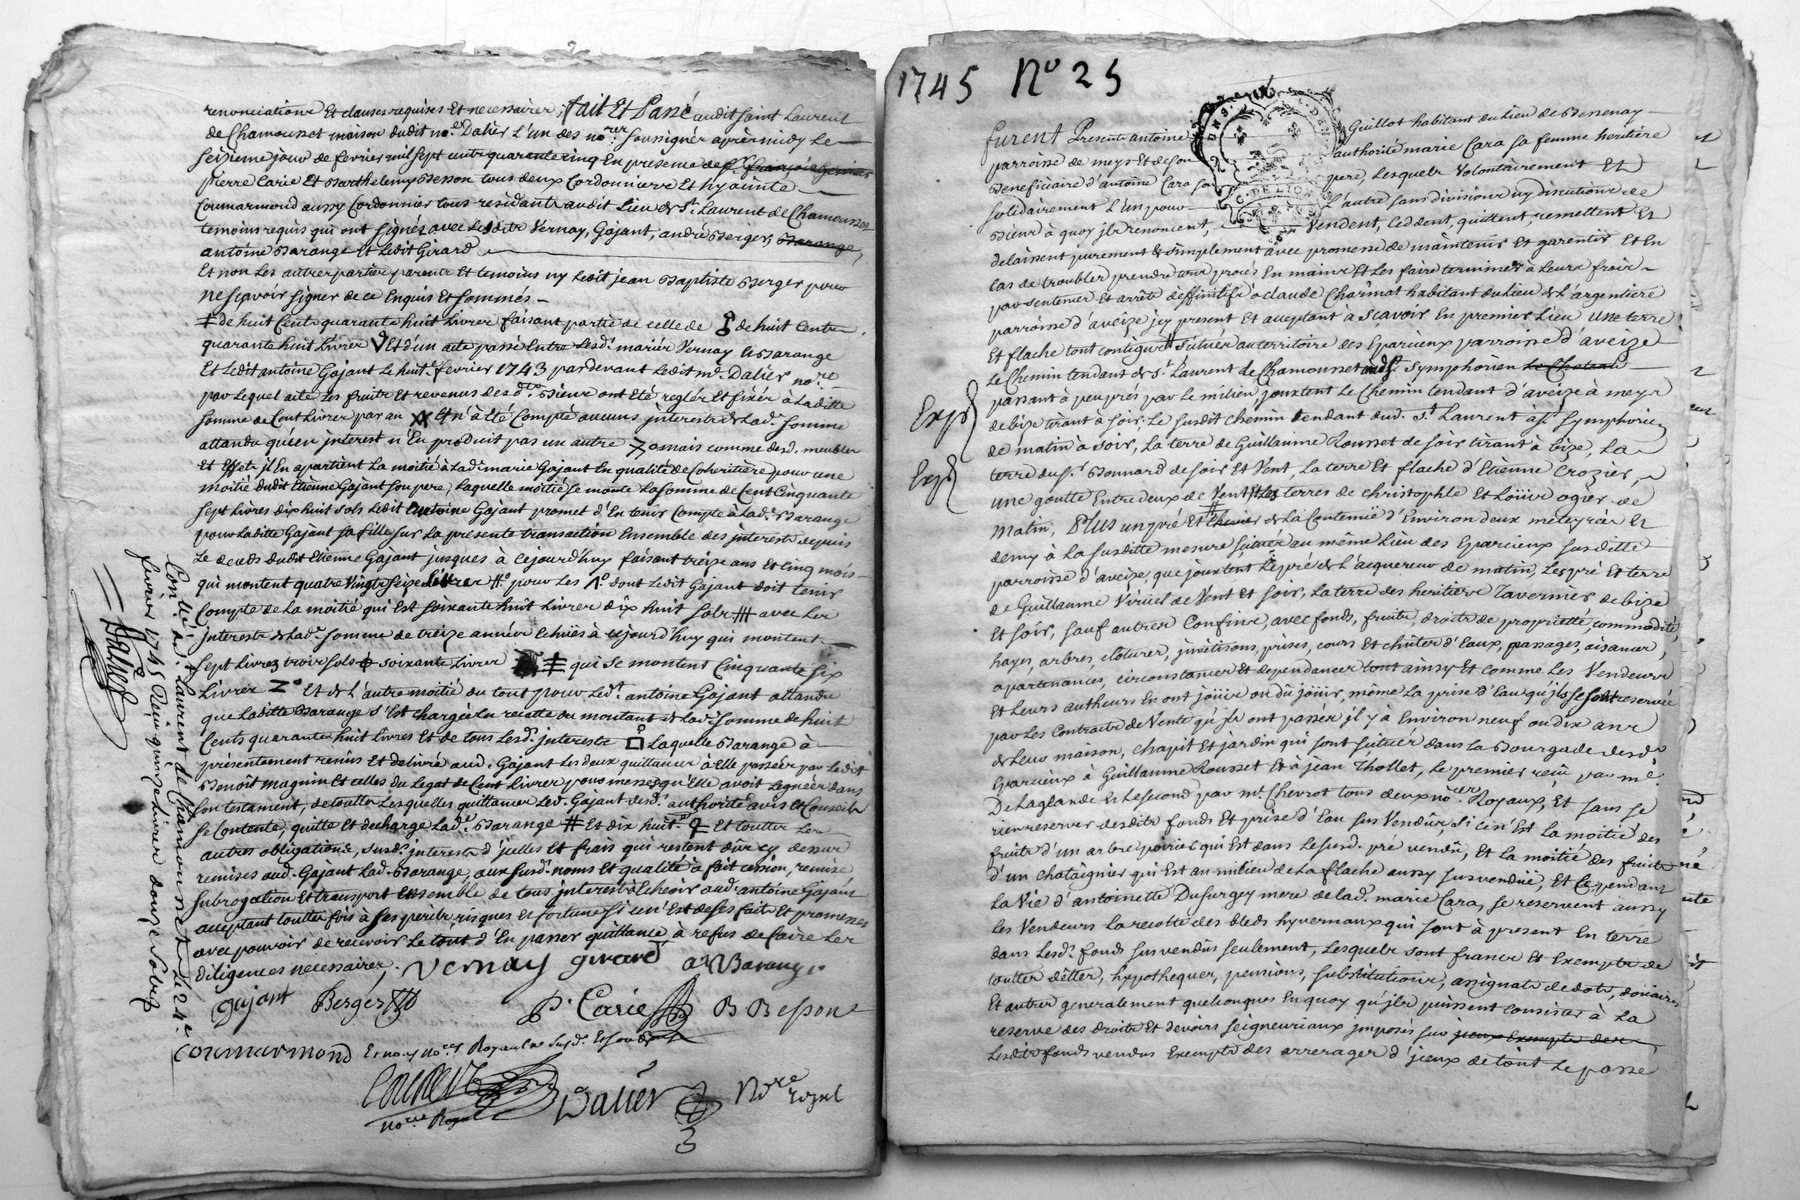 renonciations Et clauses requises Et necessaires, fait Et Passé audit saint Laurent
de Chamousset maison dudit no.re Dalier L'un des no.res soussignés après midy Le
seizieme jour de fevrier mil sept cents quarante cinq En presence de
pierre Carie Et Barthelemy Besson tous deux Cordonniers Et hyacinte
Coumarmond aussy Cordonnier tous residants audit Lieu de S.t Laurent de Chamousset
temoins requis qui ont signés avec Lesdits Vernay, Gajant, andré Berger, Barange,
antoine Barange et Ledit Girard
Et non Les autres parties parents Et temoins ny Ledit jean Baptiste Berger pour
ne sçavoir signer de ce Enquis Et sommés
de huit Cents quarante huit Livres faisant partie de celle de de huit Cents
quarante huit Livres Et d'un acte passé Entre Lesd. mariés Vernay Et Barange
Et Ledit antoine Gajant Le huit fevrier 1743 pardevant Ledit m.e Dalier no.re
par Lequel acte Les fruits et revenus desd. Biens ont Eté reglés Et fixés à Laditte
somme de Cent Livres par an Et n'a Eté Compté aucuns interests de Lad. somme
attandu qu'un interest n'En produit pas un autre mais comme desd. meubles
Et Effets jl En apartient La moitié à Lad. marie Gajant En qualité de Coheritiere pour une
moitié dudit Etienne Gajant son pere, Laquelle moitié se monte La somme de Cent Cinquante
sept Livres dix huit sols Ledit antoine Gajant promet d'En tenir Compte à Lad.e Barange
pour Laditte Gajant sa fille sur La presente transaction Ensemble des interests depuis
Le deceds dudit Etienne Gajant jusques à cejourd'huy faisant treize ans et cinq mois
qui montent quatre vingts seize Livres pour Les dont Ledit Gajant doit tenir
Compte de La moitié qui Est soixante huit Livres dix huit sols avec Les
interests de Lad. somme de treize années Echües à cejourd'huy qui montent
sept Livres trois sols soixante Livres qui se montent Cinquante six
Livres Et de L'autre moitié du tout pour Led.t antoine Gajant attandu
que Laditte Barange s'Est chargée En recette du montant de Lad. somme de huit
Cents quarante huit Livres Et de tous Lesd. interests Laquelle Barange à
présentement remis et delivré aud. Gajant Les deux quittances à Elle passées par Ledit
Benoit Magnin Et celles du Legat de Cent Livres pour messes qu'Elle avoit Leguées dans
son testament, de touttes Lesquelles quittances Led. Gajant desd. authorité avis et Conseils
se Contente, quitte Et decharge Lad.e Barange Et dix huit Et touttes Les
autres obligations, susd. interests d'jcelles Et frais qui restent dûs cy dessus
remises aud. Gajant Lad. Barange, aux susd. noms Et qualité à fait cession, remise
subrogation Et transport Ensemble de tous interests Echeoir aud. antoine Gajant
acceptant touttes fois à ses perils risques et fortune si ce n'Est de ses faits Et promesses
avec pouvoir de recevoir Le tout d'En passer quittance, à refus de faire Les
diligences necessaires. Vernay girard a Barange
gajant Berger P. Carie B Besson
coumarmond
no.re Royal Dalier No.re royal
Con.llé à S.t Laurent de Chamousset Le 24.e
fevrier 1745 Reçu quinze Livres douze sols
Dalier
1745 N.o 25
furent Presents antoine Guillot habitant du Lieu de Bessenay
parroisse de meys Et de son authorité marie Cara sa femme heritiere
Beneficiaire d'antoine Cara son pere, Lesquels Volontairement Et
solidairement L'un pour L'autre sans division ny discution de
Biens à quoy jls renoncent, Vendent, Cedent, quittent, remettent Et
delaissent purement & simplement avec promesse de maintenir Et garentir Et En
Cas de troubles prendre tous procés En mains Et Les faire terminer à Leurs frais
par sentence Et arrêts deffinitifs à claude Charmat habitant du Lieu de L'argentiere
parroisse d'aveize jcy present Et acceptant à Sçavoir En premier Lieu Une terre
Et flache tout contigue situés au territoire des Eparcieux parroisse d'aveize
Le Chemin tendant de S.t Laurent de Chamousset à S.t Symphorien Le Chateau
passant à peu prés par Le milieu jouxtent Le Chemin tendant d'aveize à meys
de bize tirant à soir, Le susdit chemin tendant dud. S.t Laurent à S.t Symphorien
de matin à soir, La terre de Guillaume Rousset de soir tirant à bize, La
terre du S.r Bonnard de soir Et Vent, La terre Et flache d'Etienne Crozier,
une goutte Entre deux de Vent Et Les terres de christophle Et Loüis ogier de
matin, Plus un pré Et de La Contenüe d'Environ deux meteyrées Et
demy à La susditte mesure situés au même Lieu des Eparcieux susditte
parroisse d'aveize, que jouxtent Le pré de L'aiguereus de matin, Les pré Et terre
de Guillaume Viricel de Vent Et soir, La terre des heritiers Tavernier de bize
Et soir, sauf autres Confins, avec fonds, fruits, droits de proprieté, commodités,
hayes, arbres, clotures, jnvetisons, prises, cours Et chutes d'Eaux, passages, aisances,
apartenances, circonstances et dependances tout ainsy Et comme Les Vendeurs
Et Leurs autheurs En ont joüis ou dû joüir, même La prise d'Eau qu'jls se sont reservée
par Les Contrats de Vente qu'jls ont passés il y à Environ neuf ou dix ans
de Leurs maison, chapit Et jardin qui sont situés dans La Bourgade desd.
Eparcieux à Guillaume Rousset Et à jean Thollet, Le premier reçû par m.e
De Laglande Et Le second par m.e Chevrot tous deux no.res Royaux, Et sans se
rien reserver desdits fonds Et prise d'Eau sus Vendus Si ce n'Est La moitié des
fruits d'un arbre poirier qui Est dans Le susd. pré vendu, Et La moitié des fruits
d'un chataignier qui Est au milieu de La flache aussy susvendüe, Et Ce pendant
La Vie d'antoinette Dusurgey mere de Lad. marie Cara, se reservent aussy
Les Vendeurs La recolte des bleds hyvernaux qui sont à present En terre
dans Lesd. fonds susvendus seulement, Lesquels sont francs et Exempts de
touttes dettes, hypotheques, pensions, substitutions, assignats de dots, douaires
Et autres generalement quelconques En quoy qu'jls puissent consister à La
reserve des droits Et devoirs seigneuriaux jmposés sur jceux Exempts des
Lesdits fonds vendus Exempts des arrerages d'jceux de tout Le passé